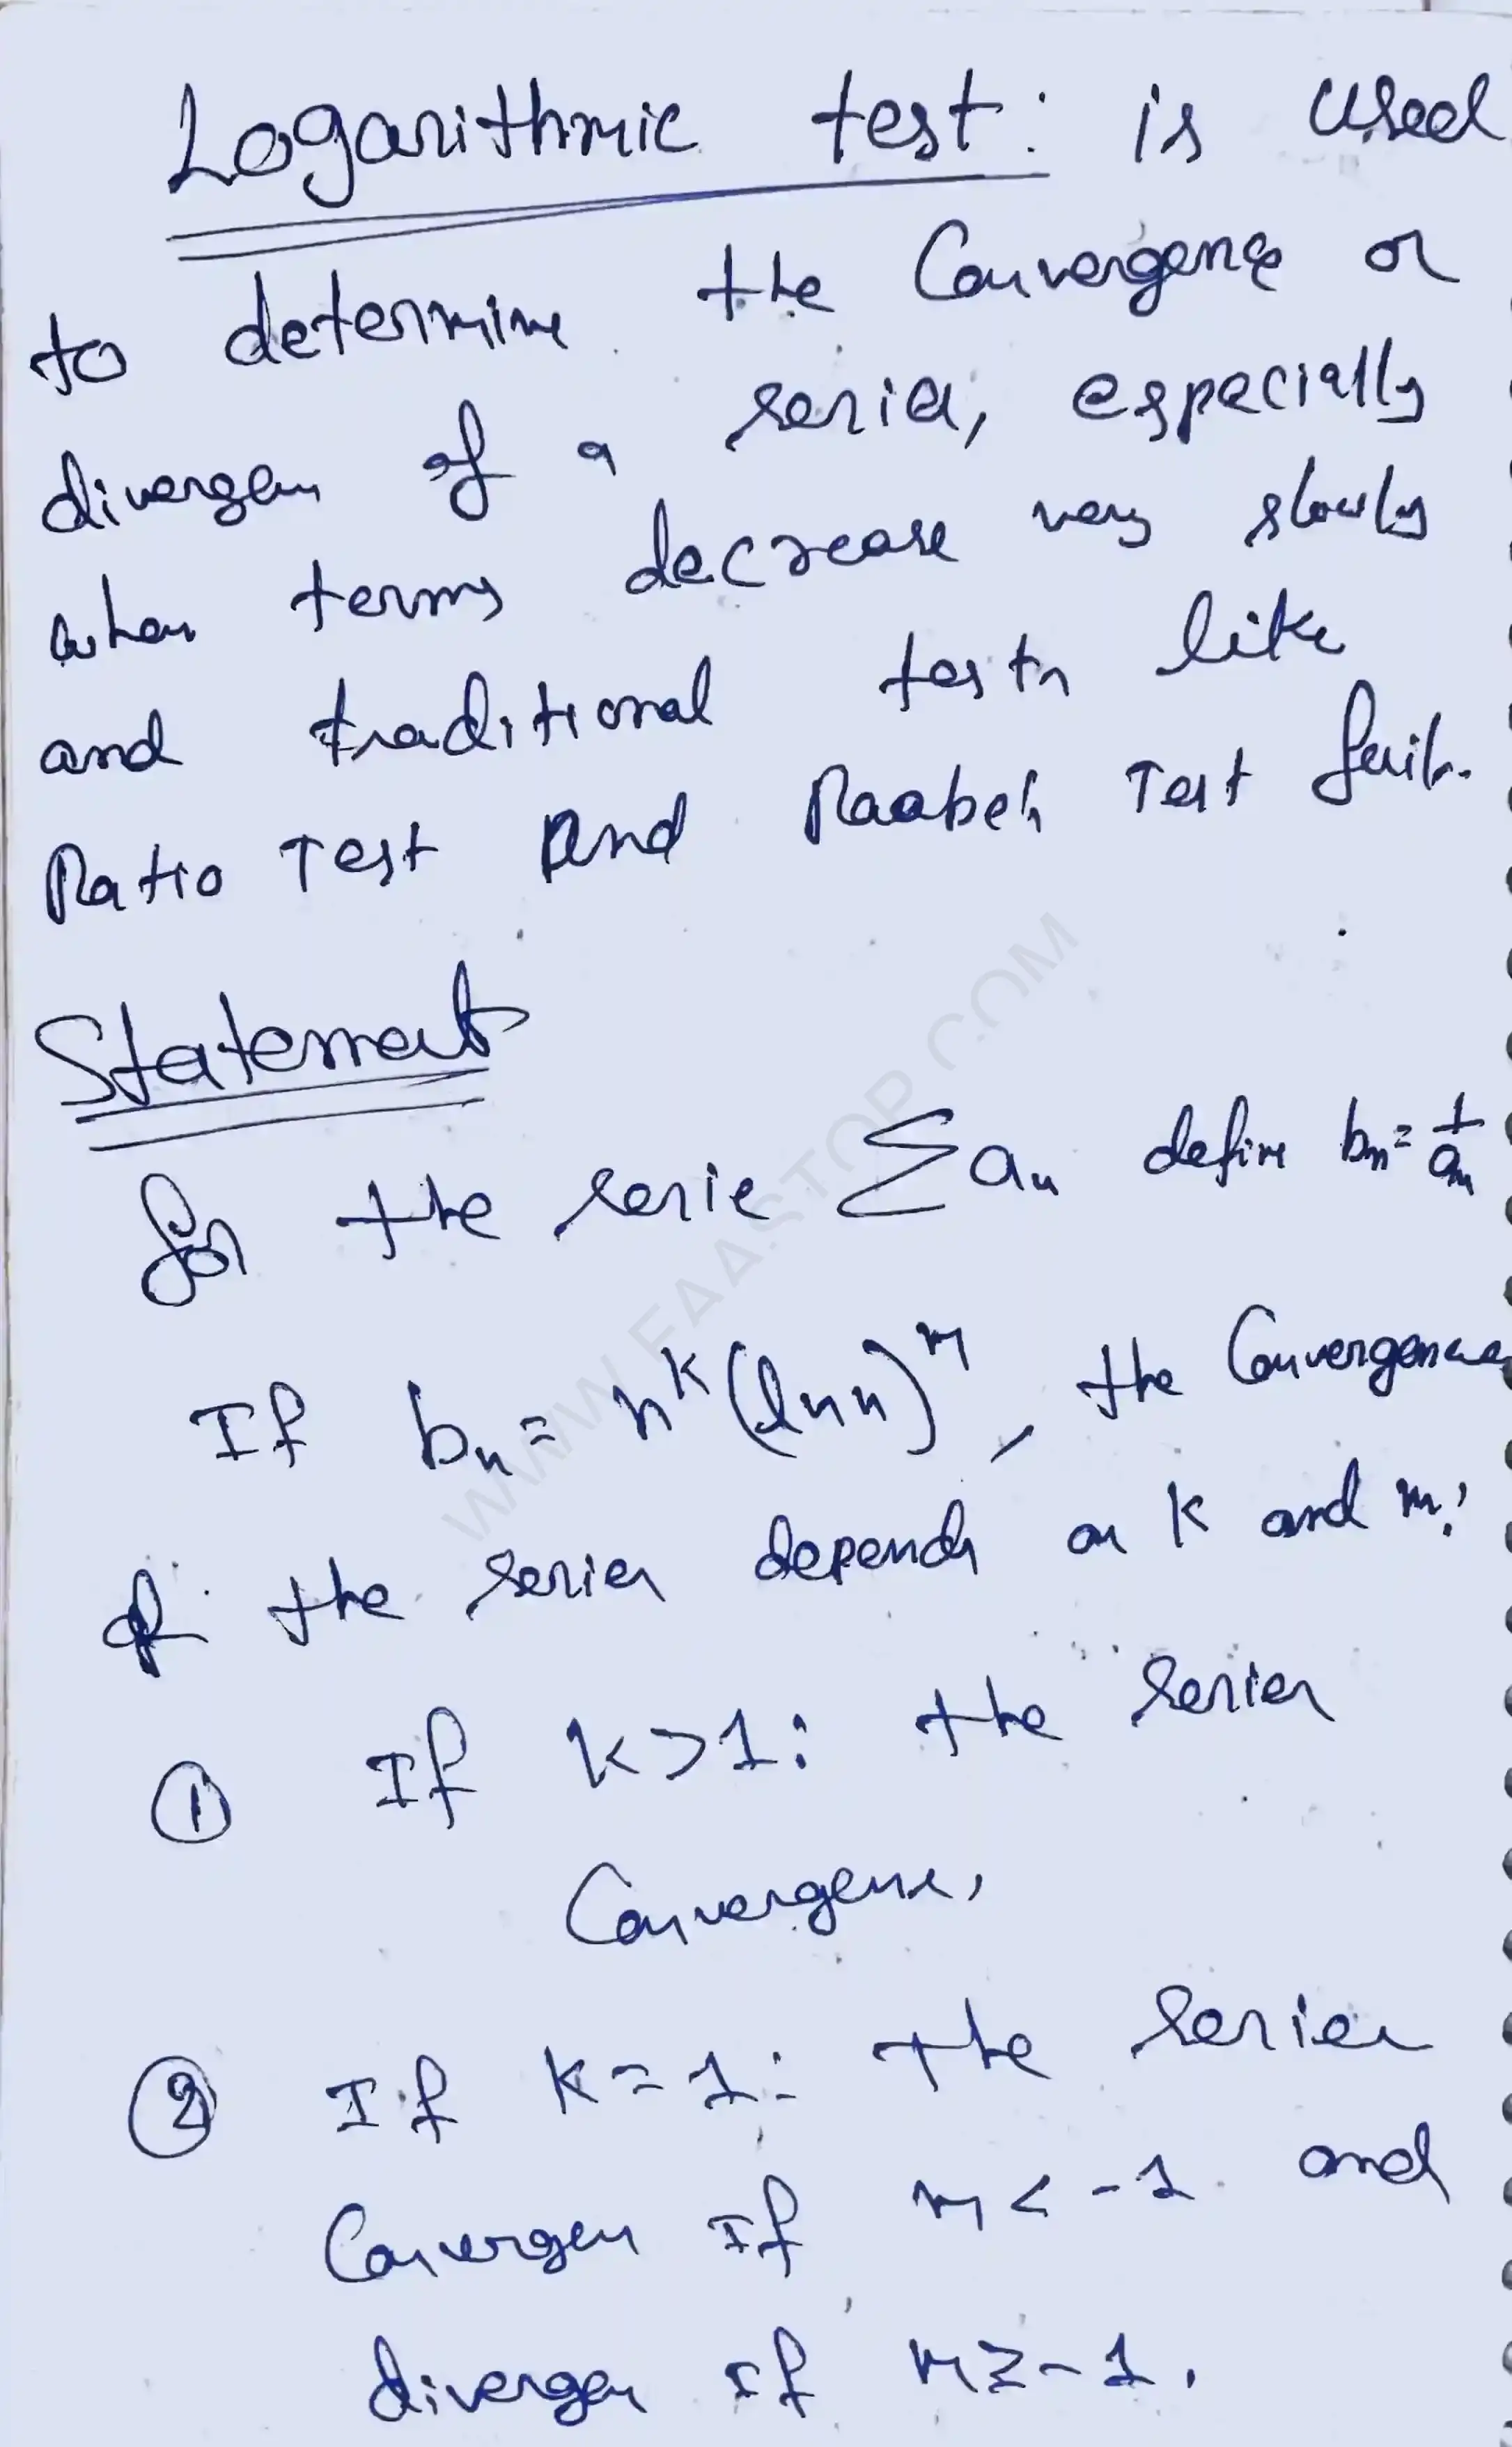 Logarithmic test: is used
to determine the Convergence or
divergen of a series, especially
when terms decrease very slowly
and traditional tests like
Ratio Test And Raabe's Test fails.
Statement
for the serie ∑aₙ define bₙ = 1/aₙ
If bₙ = n^k (ln n)^m, the Convergence
of the series depends on k and m:
① If k>1: the series
Convergence,
② If k=1: the series
Convergen If m < -1 and
divergen if m ≥ -1.
WWW.FAASTOP.COM